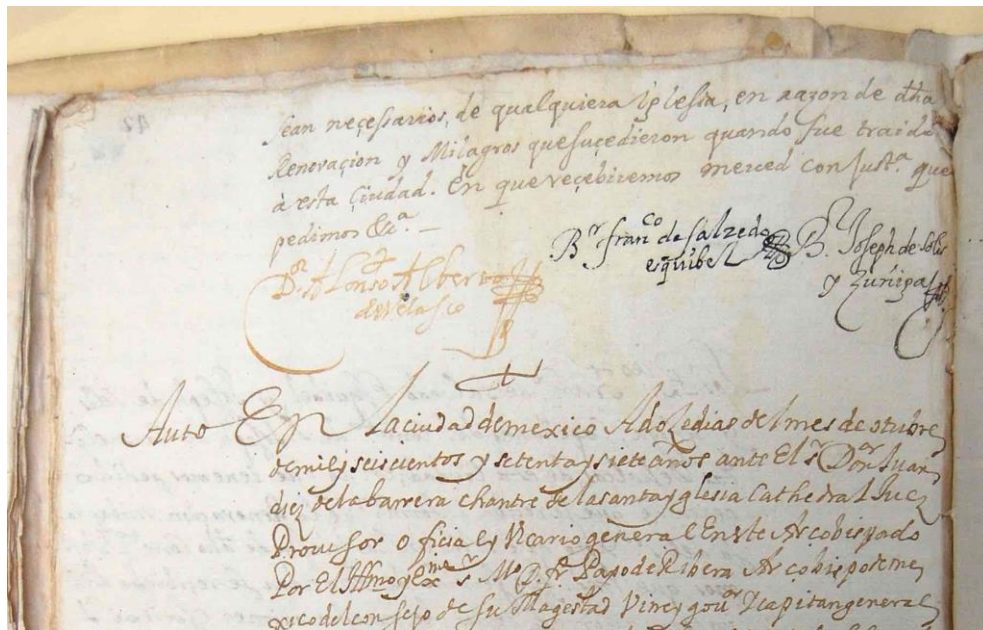 sean necessarios, de qualquiera Iglesia, en razon de dha
Renovaçion y Milagros que suçedieron quando fue traido
à esta Ciudad. En que reçebiremos merced con just.ª que
pedimos &c.ª —
Br fran.co de Salzedo
esquibel
Br. Joseph de Solis
y Zuñiga
Dor. Alonso Alberto
de Velasco
Auto En La ciudad de mexico A doze dias del mes de otubre
de mil y seiscientos y setenta y siete años ante El sr Dor. Juan
diez de la barrera chantre de la santa yglesia Cathedral Juez
Provisor oficial y Vicario general En este Arcobispado
Por El Illmo y Exmo sr Mo. D. fr. Payo de Ribera Arcobispo de me
xico del consejo de su Magestad Virrey gour. Y capitan general